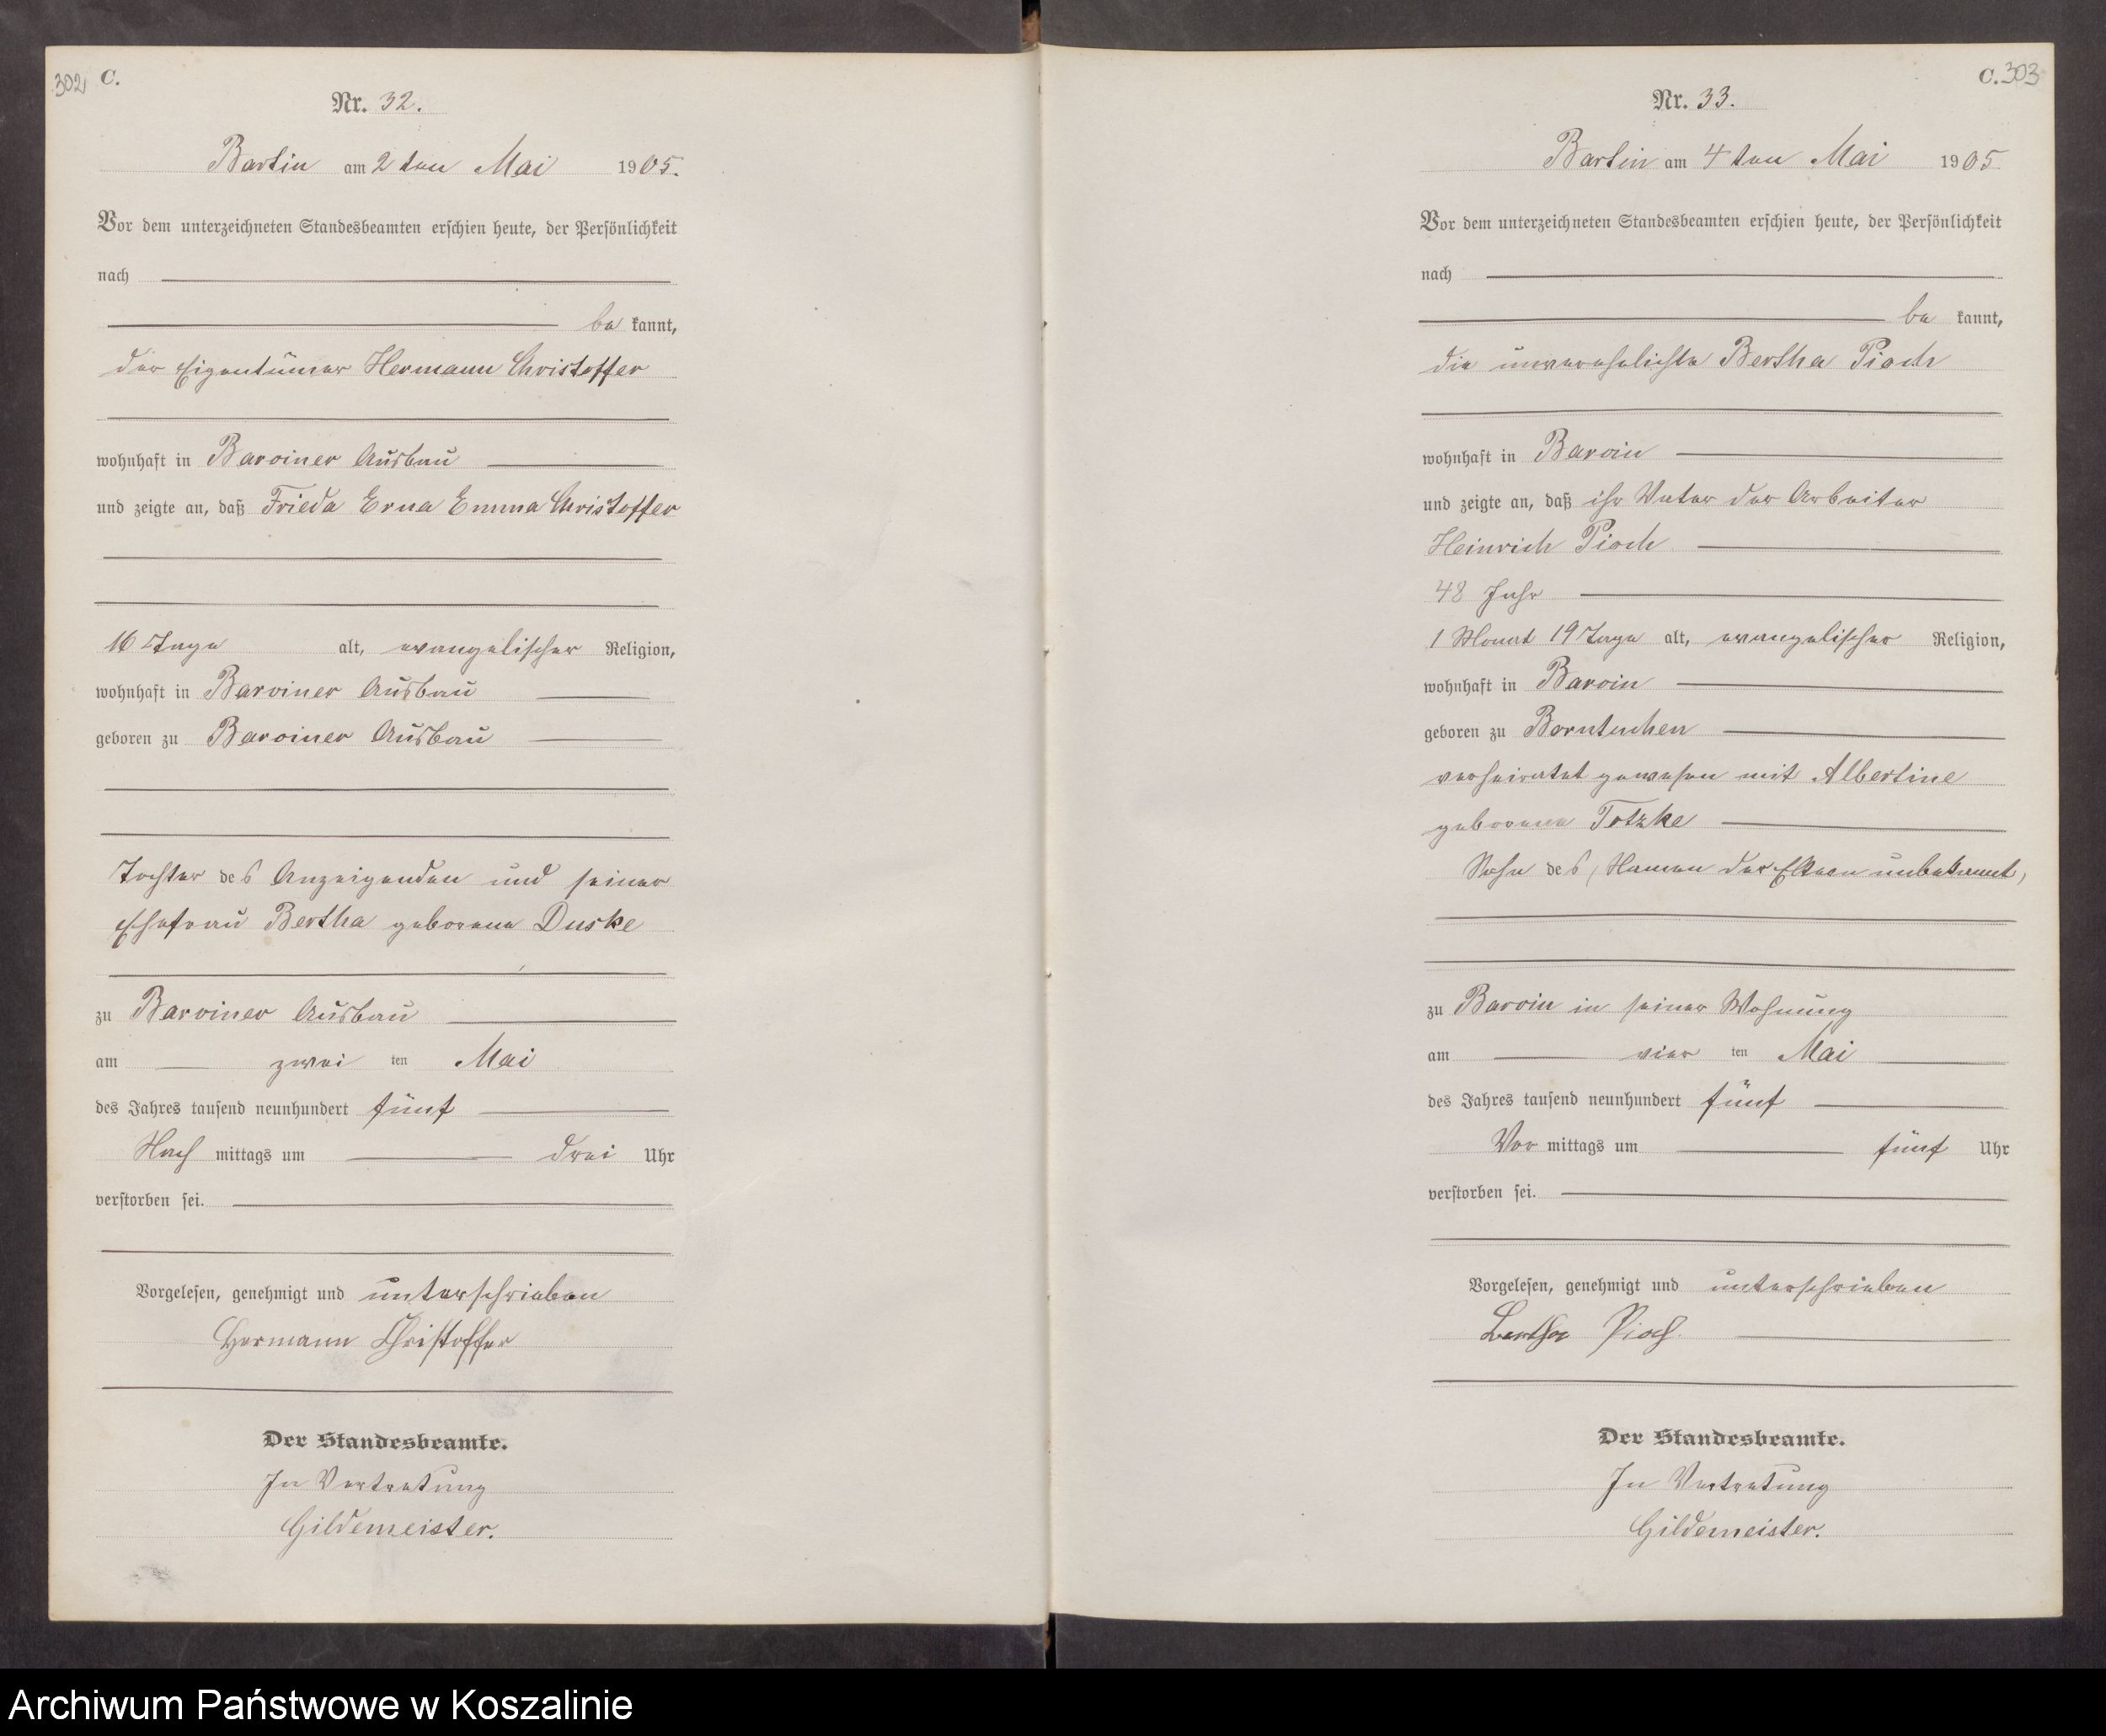 302 C.
Nr. 32.
Bartin am 2 ten Mai 1905.
Vor dem unterzeichneten Standesbeamten erschien heute, der Persönlichkeit
nach
be kannt,
der Eigentümer Hermann Christoffer
wohnhaft in Barviner Ausbau
und zeigte an, daß Frieda Erna Emma Christoffer
16 Tage alt, evangelischer Religion,
wohnhaft in Barviner Ausbau
geboren zu Barviner Ausbau
Tochter des Anzeigenden und seiner
Ehefrau Bertha geborene Duske
zu Barviner Ausbau
am zwei ten Mai
des Jahres tausend neunhundert fünf
Nach mittags um drei Uhr
verstorben sei.
Vorgelesen, genehmigt und unterschrieben
Hermann Christoffer
Der Standesbeamte.
In Vertretung
Gildemeister.
C. 303
Nr. 33.
Bartin am 4 ten Mai 1905
Vor dem unterzeichneten Standesbeamten erschien heute, der Persönlichkeit
nach
be kannt,
die unverehelichte Bertha Pioch
wohnhaft in Barvin
und zeigte an, daß ihr Vater der Arbeiter
Heinrich Pioch
48 Jahr
1 Monat 19 Tage alt, evangelischer Religion,
wohnhaft in Barvin
geboren zu Borntuchen
verheiratet gewesen mit Albertine
geborene Totzke
Sohn des (Namen der Eltern unbekannt)
zu Barvin in seiner Wohnung
am vier ten Mai
des Jahres tausend neunhundert fünf
Vor mittags um fünf Uhr
verstorben sei.
Vorgelesen, genehmigt und unterschrieben
Bertha Pioch
Der Standesbeamte.
In Vertretung
Gildemeister.
Archiwum Państwowe w Koszalinie